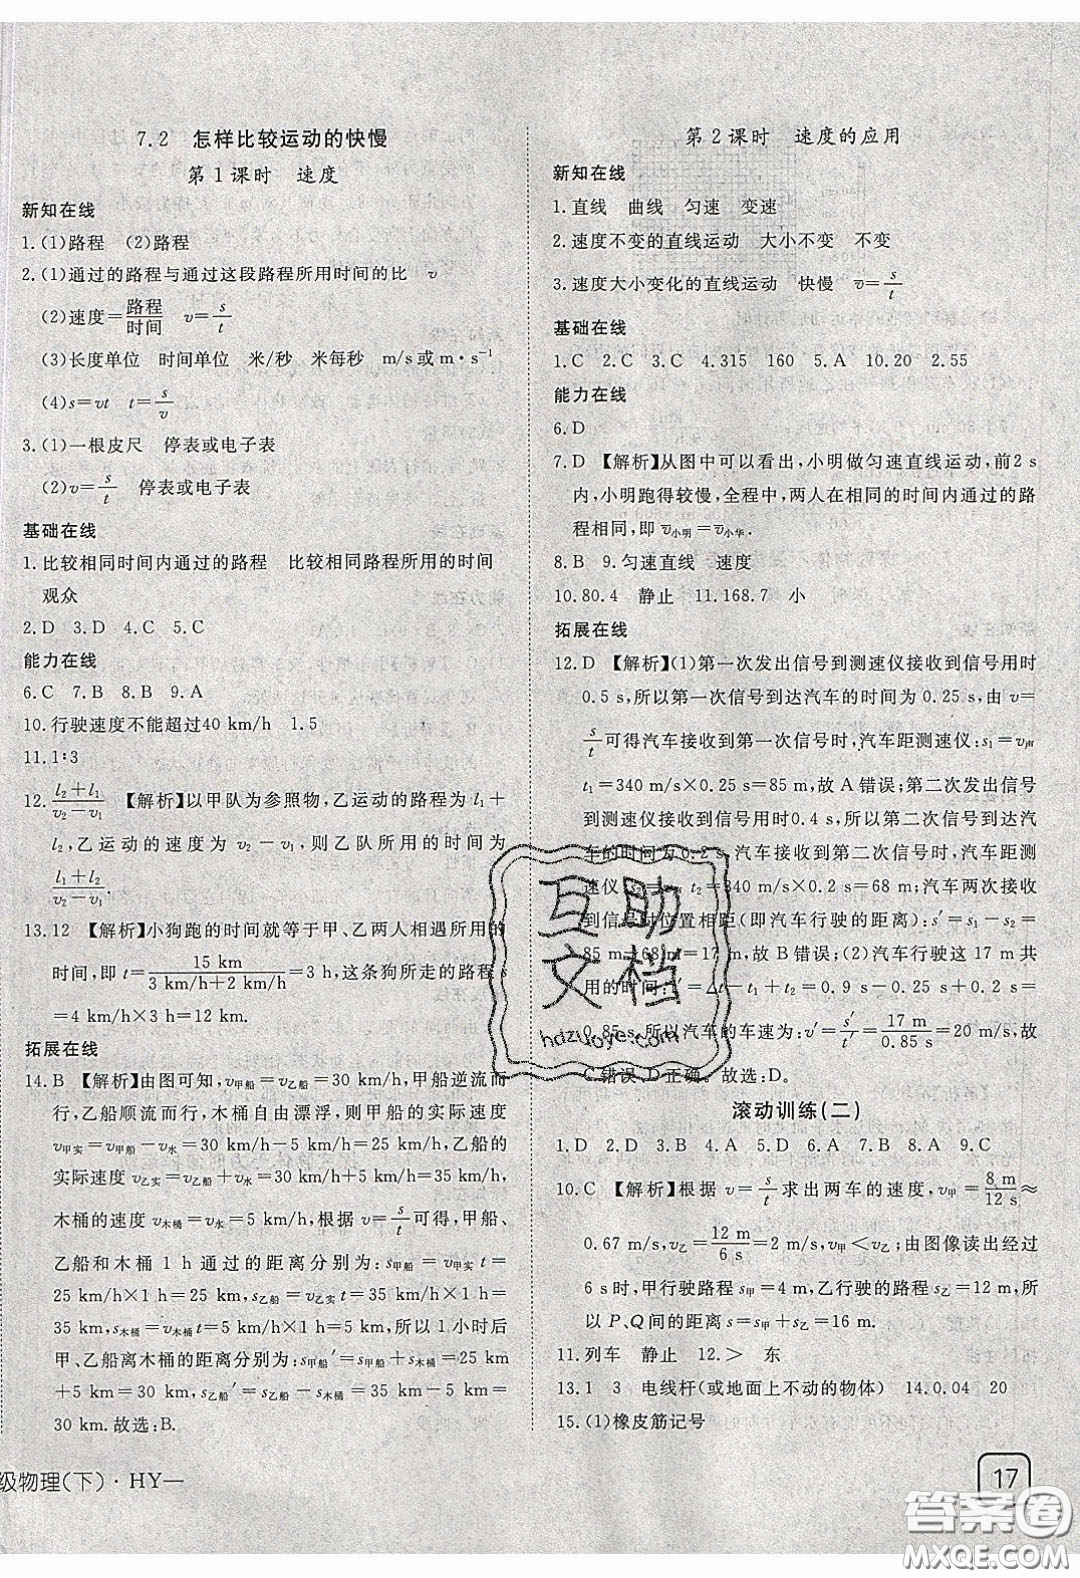 7.2 怎样比较运动的快慢
第1课时 速度
新知在线
1.(1)路程 (2)路程
2.(1)通过的路程与通过这段路程所用时间的比 v
(2)速度=路程/时间 v=s/t
(3)长度单位 时间单位 米/秒 米每秒 m/s或m·s⁻¹
(4)s=vt t=s/v
3.(1)一根皮尺 停表或电子表
(2)v=s/t 停表或电子表
基础在线
1.比较相同时间内通过的路程 比较相同路程所用的时间
观众
2.D 3.D 4.C 5.C
能力在线
6.C 7.B 8.B 9.A
10.行驶速度不能超过40 km/h 1.5
11.1∶3
12.(l₂+l₁)/(v₂−v₁) 【解析】以甲队为参照物,乙运动的路程为 l₁+
l₂,乙运动的速度为 v₂−v₁,则乙队所用的时间为
(l₁+l₂)/(v₂−v₁).
13.12 【解析】小狗跑的时间就等于甲、乙两人相遇所用的
时间,即 t=15 km/(3 km/h+2 km/h)=3 h,这条狗所走的路程 s
=4 km/h×3 h=12 km.
拓展在线
14.B 【解析】由图可知,v甲船=v乙船=30 km/h,甲船逆流而
行,乙船顺流而行,木桶自由漂浮,则甲船的实际速度
v甲实=v甲船−v水=30 km/h−5 km/h=25 km/h,乙船的
实际速度 v乙实=v乙船+v水=30 km/h+5 km/h=35 km/h,
木桶的速度 v木桶=v水=5 km/h,根据 v=s/t可得,甲船、
乙船和木桶 1 h 通过的距离分别为:s甲船=v甲实t=
25 km/h×1 h=25 km,s乙船=v乙实t=35 km/h×1 h=
35 km,s木桶=v水t=5 km/h×1 h=5 km,所以1小时后
甲、乙船离木桶的距离分别为:s甲船′=s甲船+s木桶=25 km
+5 km=30 km,s乙船′=s乙船−s木桶=35 km−5 km=
30 km.故选:B.
级物理(下)·HY—
第2课时 速度的应用
新知在线
1.直线 曲线 匀速 变速
2.速度不变的直线运动 大小不变 不变
3.速度大小变化的直线运动 快慢 v=s/t
基础在线
1.C 2.C 3.C 4.315 160 5.A 10.20 2.55
能力在线
6.D
7.D 【解析】从图中可以看出,小明做匀速直线运动,前2 s
内,小明跑得较慢,全程中,两人在相同的时间内通过的路
程相同,即 v小明=v小华.
8.B 9.匀速直线 速度
10.80.4 静止 11.168.7 小
拓展在线
12.D 【解析】(1)第一次发出信号到测速仪接收到信号用时
0.5 s,所以第一次信号到达汽车的时间为 0.25 s,由 v=
s/t可得汽车接收到第一次信号时,汽车距测速仪:s₁=v声
t₁=340 m/s×0.25 s=85 m,故 A 错误;第二次发出信号
到测速仪接收到信号用时0.4 s,所以第二次信号到达汽
车的时间为 0.2 s,汽车接收到第二次信号时,汽车距测
速仪 s₂=v声 t₂=340 m/s×0.2 s=68 m;汽车两次接收
到信号时位置相距(即汽车行驶的距离):s′=s₁−s₂=
85 m−68 m=17 m,故 B 错误;(2)汽车行驶这 17 m 共
用的时间:t′=Δt−t₁+t₂=0.9 s−0.25 s+0.2 s=
0.85 s,所以汽车的车速为:v′=s′/t′=17 m/0.85 s=20 m/s,故
C 错误、D 正确。故选:D。
滚动训练(二)
1.D 2.D 3.B 4.C 5.A 6.A 7.B 8.A 9.C
10.C 【解析】根据 v=s/t 求出两车的速度,v甲=8 m/12 s≈
0.67 m/s,v乙=12 m/6 s=2 m/s,v甲<v乙;由图像读出经过
6 s时,甲行驶路程 s甲=4 m,乙行驶路程 s乙=12 m,所
以 P、Q间的距离 s=s甲+s乙=16 m.
11.列车 静止 12.> 东
13.1 3 电线杆(或地面上不动的物体) 14.0.04 20
15.(1)橡皮筋记号
17
互助
文档
hdzuoye.com
答案圈
MXQE.COM